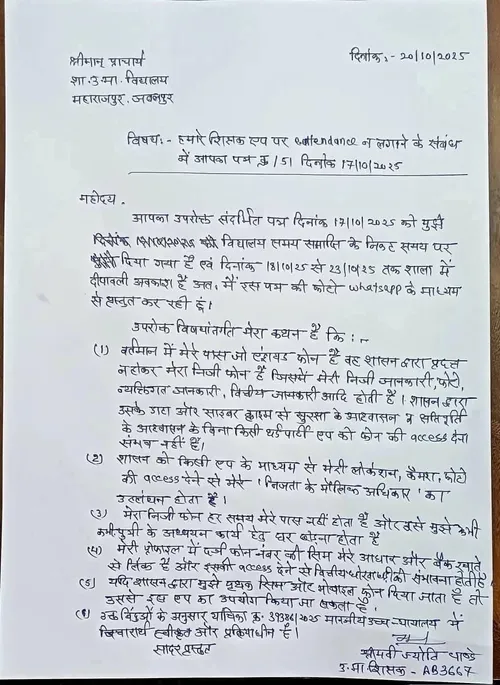 दिनांक:- 20/10/2025
श्रीमान् प्राचार्य
शा.उ.मा. विद्यालय
महाराजपुर, जबलपुर
विषय:- हमारे शिक्षक एप पर eattendance न लगाने के संबंध
में आपका पत्र क्र/51 दिनांक 17/10/2025
महोदय,
आपका उपरोक्त संदर्भित पत्र दिनांक 17/10/2025 को मुझे
विद्यालय समय समाप्ति के निकट समय पर
दिया गया है एवं दिनांक 18/10/25 से 23/10/25 तक शाला में
दीपावली अवकाश है अतः में इस पत्र की फोटो whatsapp के माध्यम
से प्रस्तुत कर रही हूं।
उपरोक्त विषयांतर्गत मेरा कथन है कि :-
(1) वर्तमान में मेरे पास जो एंड्रायड फोन है वह शासन द्वारा प्रदत्त
न होकर मेरा निजी फोन है जिसमें मेरी निजी जानकारी, फोटो,
व्यक्तिगत जानकारी, वित्तीय जानकारी आदि होती है। शासन द्वारा
उसके डाटा और साइबर क्राइम से सुरक्षा के आश्वासन व क्षतिपूर्ति
के आश्वासन के बिना किसी थर्ड पार्टी एप को फोन की access देना
संभव नहीं है।
(2) शासन को किसी एप के माध्यम से मेरी लोकेशन, कैमरा, फोटो
की access देने से मेरे 'निजता के मौलिक अधिकार' का
उल्लंघन होता है।
(3) मेरा निजी फोन हर समय मेरे पास नहीं होता है और इसे मुझे कभी
कभी पुत्री के अध्ययन कार्य हेतु घर छोड़ना होता है
(4) मेरी प्रोफाइल में दर्ज फोन नंबर की सिम मेरे आधार और बैंक खाते
से लिंक है और इसकी access देने से वित्तीय धोखाधड़ी की संभावना होती है
(5) यदि शासन द्वारा मुझे पृथक सिम और मोबाइल फोन दिया जाता है तो
उससे इस एप का उपयोग किया जा सकता है।
(6) उक्त बिंदुओं के अनुसार याचिका क्र. 39386/2025 माननीय उच्च न्यायालय में
विचारार्थ स्वीकृत और प्रक्रियाधीन है।
सादर प्रस्तुत
श्रीमती ज्योति पाण्डे
उ.मा. शिक्षक - AB3667